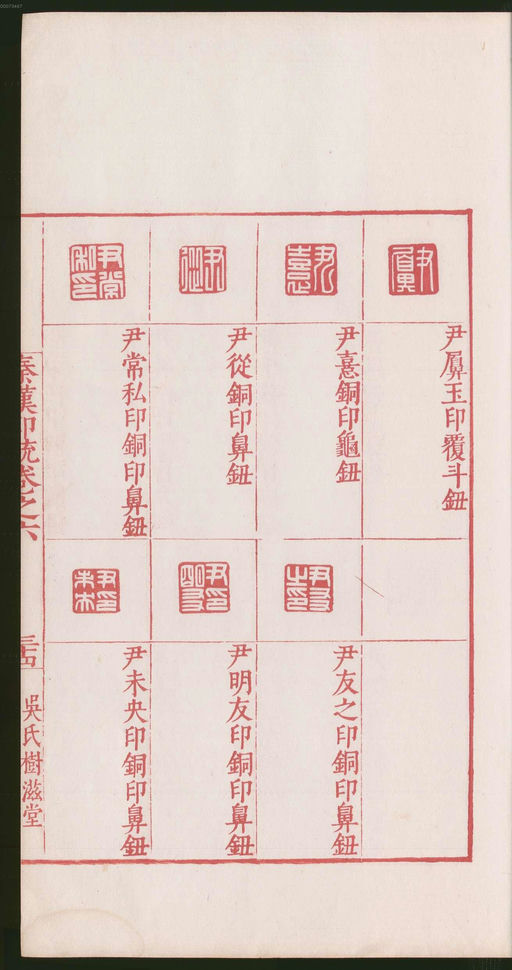 00073447
尹屓玉印覆斗鈕
尹憙銅印龜鈕
尹從銅印鼻鈕
尹常私印銅印鼻鈕
尹友之印銅印鼻鈕
尹明友印銅印鼻鈕
尹未央印銅印鼻鈕
秦漢印統卷之六
吳氏樹滋堂